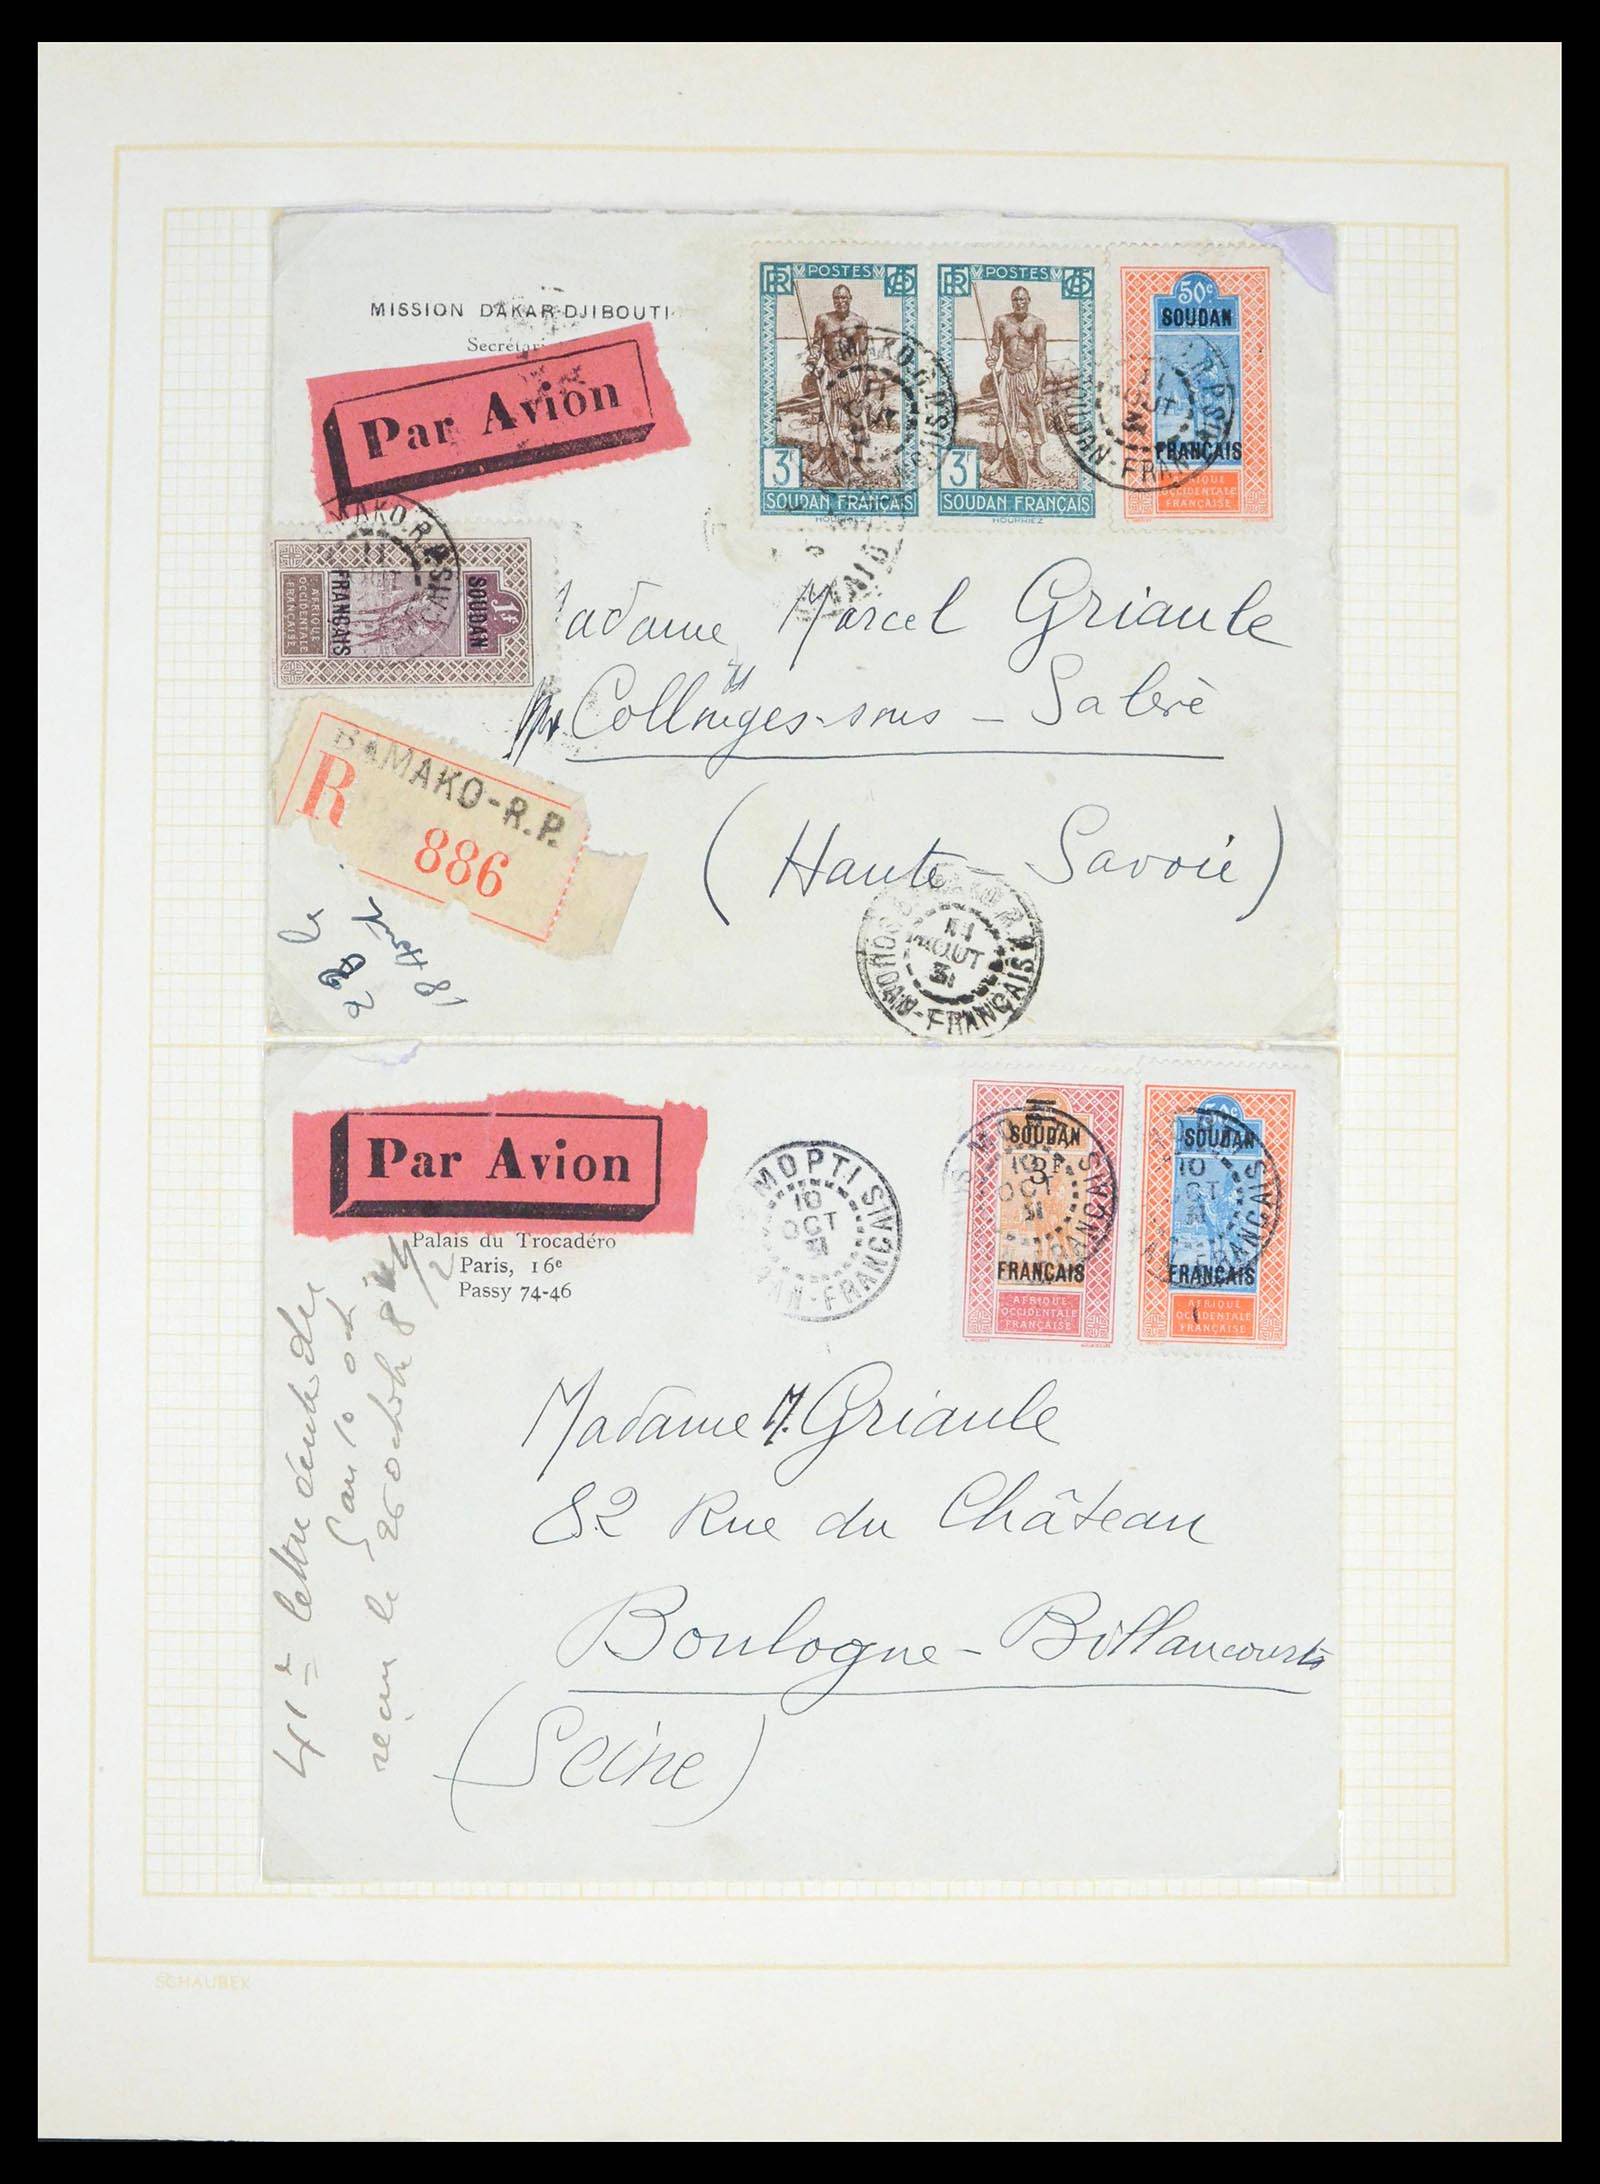 MISSION DAKAR-DJIBOUTI
Secrétari
Par Avion
RF POSTES
3F
SOUDAN FRANÇAIS
HOURRIEZ
RF POSTES
3F
SOUDAN FRANÇAIS
HOURRIEZ
50c
SOUDAN
FRANÇAIS
AFRIQUE
OCCIDENTALE
FRANÇAISE
BAMAKO.R.P.
SOUDAN-FRANÇAIS
1F
SOUDAN
FRANÇAIS
AFRIQUE
OCCIDENTALE
FRANÇAISE
Madame Marcel Griaule
Collonges-sous-Salève
(Haute-Savoie)
R
BAMAKO-R.P.
886
le
18
BAMAKO R.P.
11
AOUT
31
SOUDAN-FRANÇAIS
Par Avion
Palais du Trocadéro
Paris, 16e
Passy 74-46
MOPTI
10
OCT
31
SOUDAN-FRANÇAIS
SOUDAN
3F
FRANÇAIS
AFRIQUE
OCCIDENTALE
FRANÇAISE
50c
SOUDAN
10
OCT
31
FRANÇAIS
AFRIQUE
OCCIDENTALE
FRANÇAISE
Madame M. Griaule
82 Rue du Château
Boulogne-Billancourt
(Seine)
41e lettre
reçu le 26 octobre
SCHAUBEK